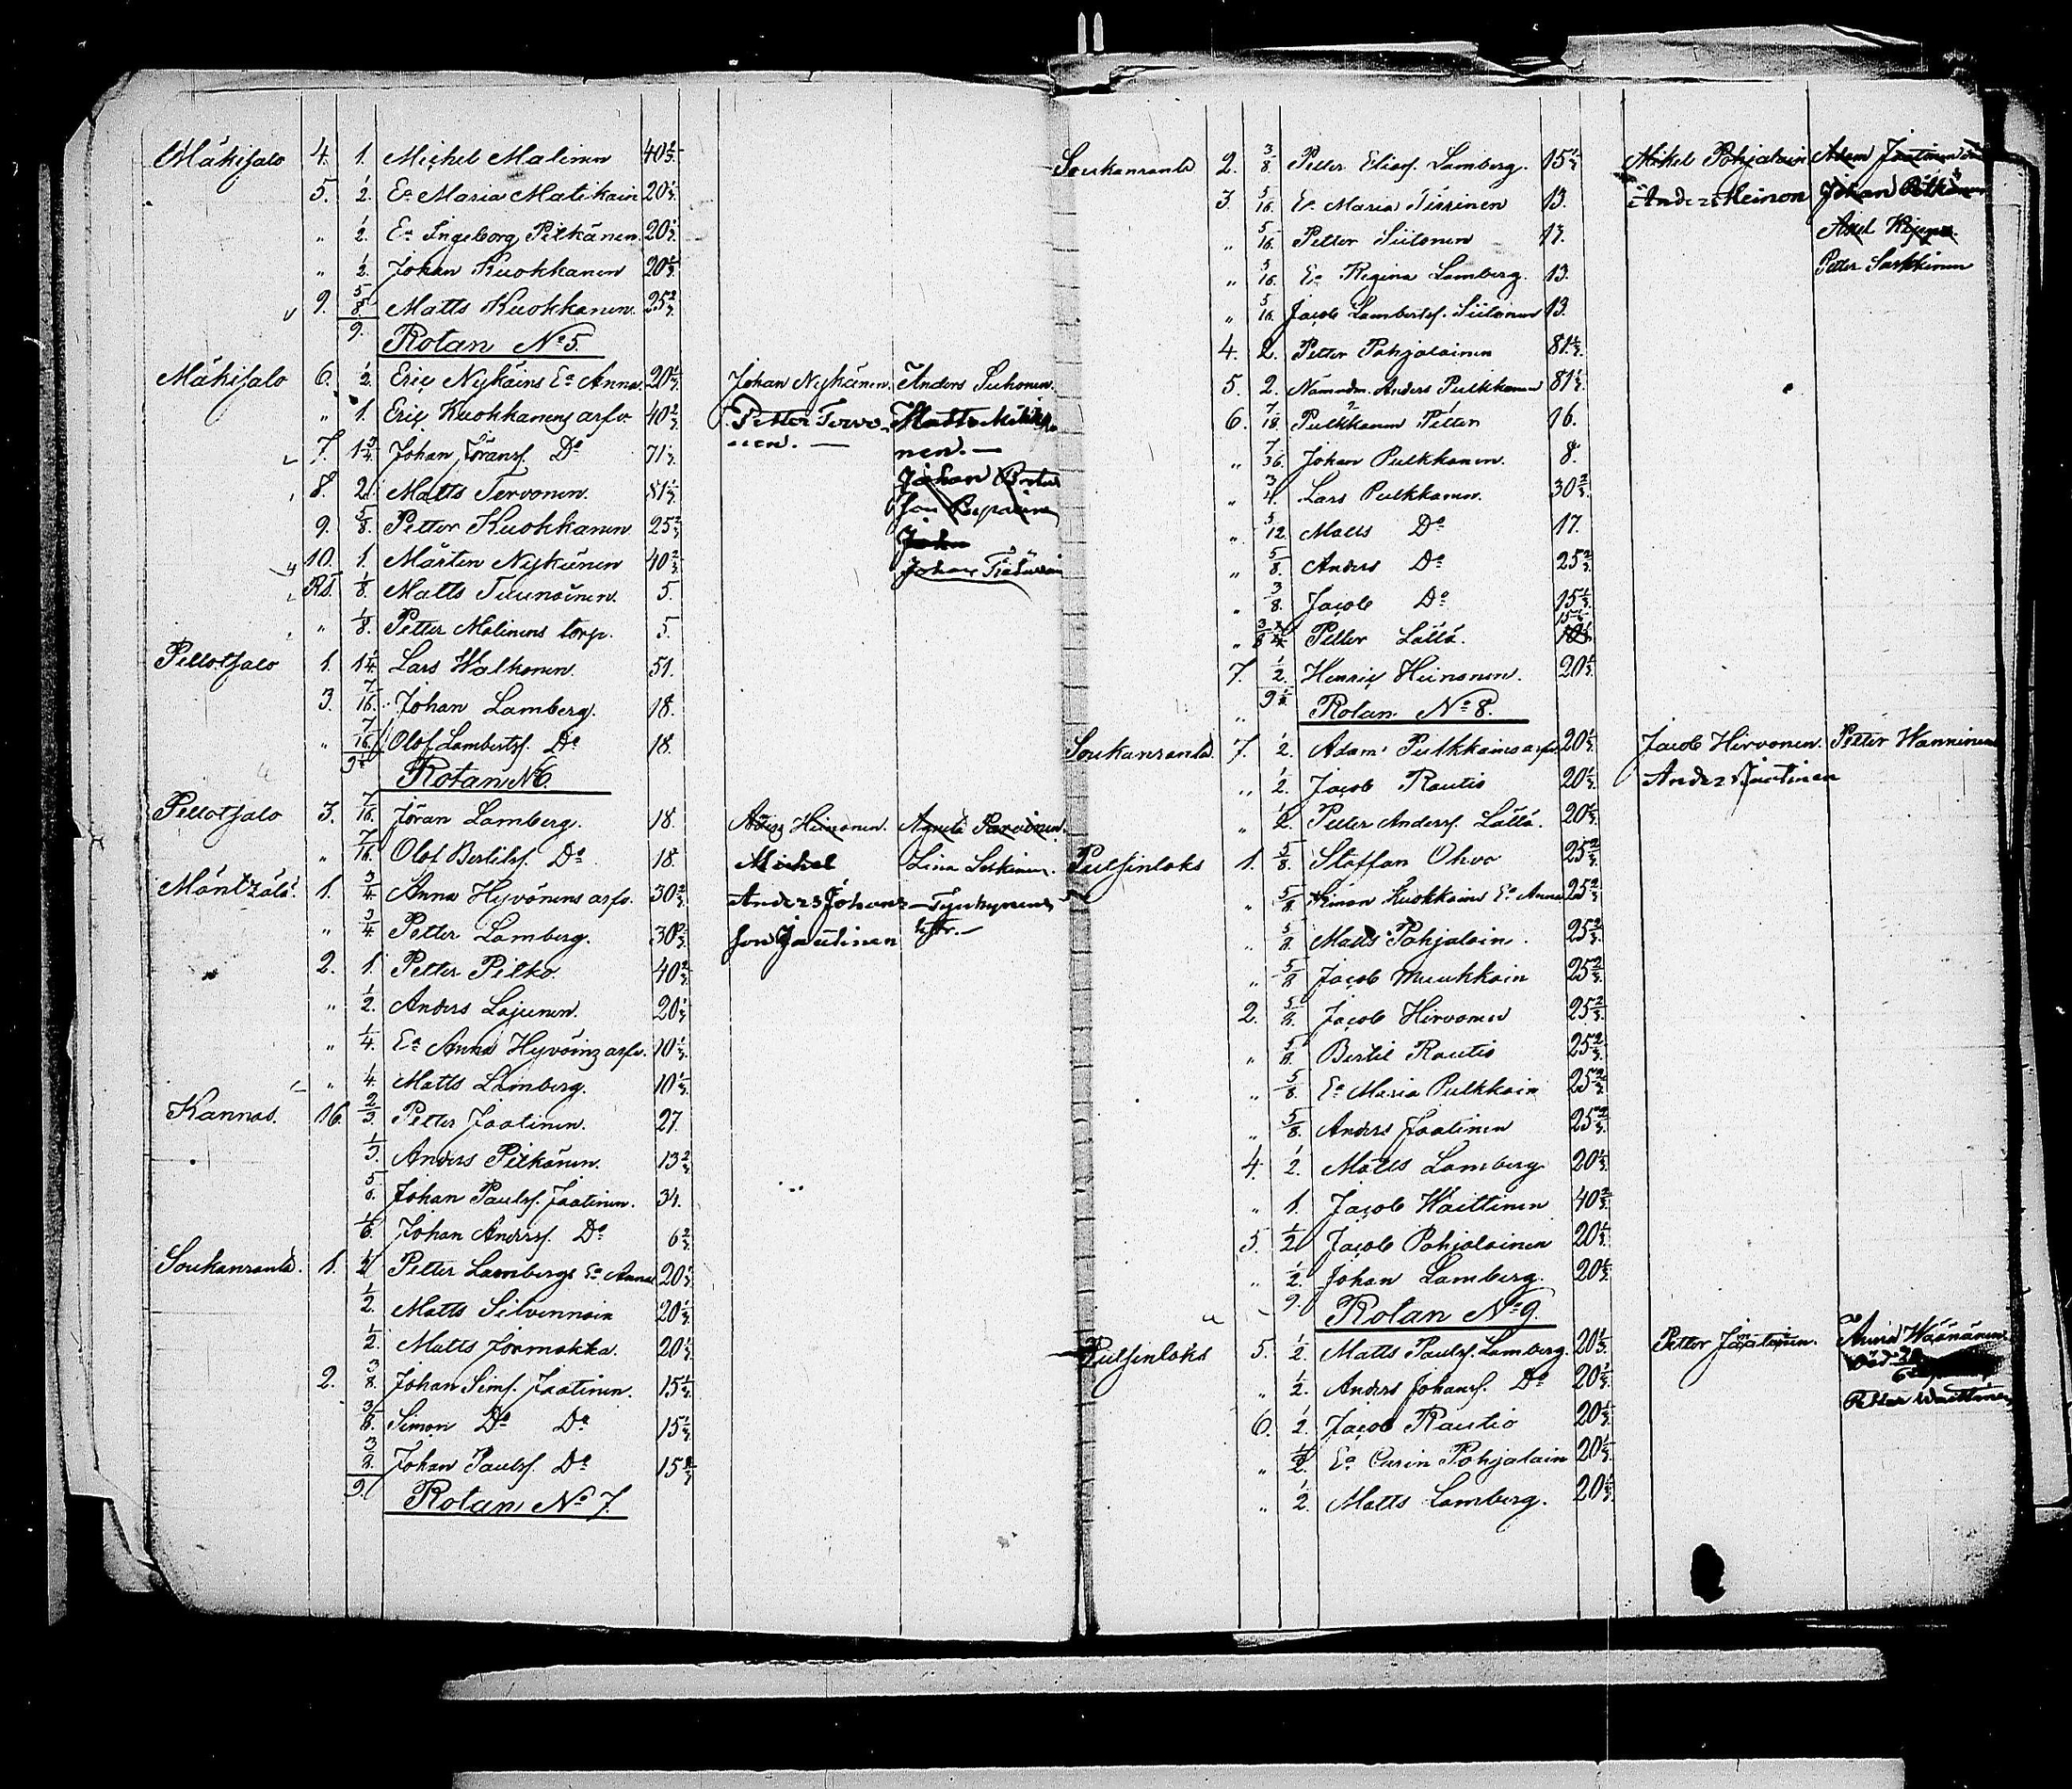 Mäkisalo 4. 1. Michel Malinen 40 2/3.
5. 1/2. Ea Maria Matikain 20 1/3.
" 1/2. Ea Ingeborg Pitkänen. 20 1/3.
" 1/2. Johan Kuokkanen 20 1/3.
9. 5/8. Matts Kuokkanen. 25 2/3.
9. Rotan No 5.
Mäkisalo 6. 1/2. Eric Nykäins Ea Anna. 20 1/3. Johan Nykänen. Anders Suhonen.
" 1. Eric Kuokkanens arfv. 40 2/3. Petter Tervo- Matts
7. 1 3/4. Johan Göransf. Do 71 1/3. nen. — nen. —
8. 2. Matts Tervonen. 81 1/3. Johan
9. 5/8. Petter Kuokkanen 25 2/3.
10. 1. Mårten Nykänen 40 2/3. John
RS. 1/8. Matts Tuunainen. 5. Johan
" 1/8. Petter Malinens torp. 5.
Pellotsalo 1. 1 1/4. Lars Walkonen. 51.
3. 7/16. Johan Lamberg. 18.
" 7/16. Olof Lambertsf. Do 18.
Rotan No 6.
Pellotsalo 3. 7/16. Jöran Lamberg. 18. Heinonen. Agneta Parvinen.
" 7/16. Olof Bertilsf. Do 18. Michel Lisa Leskinen.
Mäntzälä 1. 3/4. Anna Hyvönens arfv. 30 2/3. Anders Johans-
" 3/4. Petter Lamberg. 30 2/3. son Jäutinen
2. 1. Petter Pitko. 40 2/3.
" 1/2. Anders Lajunen. 20 1/3.
" 1/4. Ea Anna Hyvöins arfv. 10 1/3.
" 1/4. Matts Lamberg. 10 1/3.
Kannas. 16. 2/3. Petter Jaatinen. 27.
1/3. Anders Pitkänen. 13 2/3.
5/6. Johan Paulsf. Jaatinen. 34.
1/6. Johan Andersf. Do 6 2/3.
Soukanranta. 1. 1/2 Petter Lambergs Ea Anna 20 1/3.
1/2. Matts Silvennoin 20 1/3.
1/2. Matts Jormakka. 20 1/3.
2. 3/8. Johan Simf. Jaatinen. 15 1/3.
3/8. Simon Do Do 15 1/3.
Johan Paulsf. Do 15 1/3
9. Rotan No 7.
Soukanranta 2. 3/8. Petter Eliasf. Lamberg. 15 1/3. Mikel Pohjalain Adam Jaatinen
3. 5/16. Ea Maria Tirrinen 13. Anders Heinon Johan Pitkänen
" 5/16. Petter Siitonen 17.
" 5/16. Ea Regina Lamberg. 13. Petter Sarkkinen
" 5/16. Jacob Lambertsf. Siitonen 13.
4. 2. Petter Pohjalainen 81 1/3.
5. 2. Nämndm. Anders Pulkkanen 81 1/3.
6. 7/18. Pulkkanen Petter 16.
" 7/36. Johan Pulkkanen. 8.
" 3/4. Lars Pulkkanen. 30 2/3.
" 5/12. Matts Do 17.
" 5/8. Anders Do 25 2/3.
" 3/8. Jacob Do 15 1/3.
" 3/8 Petter Lättä. 15 1/6
7. 1/2. Henric Heinonen. 20 1/3.
Rotan No 8.
Soukanranta 7. 1/2. Adam Pulkkains arfv. 20 1/3. Jacob Hirvonen. Petter Wanninen
" 1/2. Jacob Rautio 20 1/3. Anders Jäutinen
" 1/2. Petter Andersf. Lättä. 20 1/3.
Putsinlaks 1. 5/8. Staffan Ohvo 25 2/3.
" 5/8. Simon Kuokkains Ea Anna 25 2/3.
" 5/8. Matts Pohjalain. 25 2/3.
" 5/8 Jacob Muukkain 25 2/3.
2. 5/8. Jacob Hirvonen 25 2/3.
" 5/8. Bertil Rautio 25 2/3.
" 5/8. Ea Maria Pulkkain 25 2/3.
" 5/8. Anders Jaatinen 25 2/3.
4. 1/2. Matts Lamberg 20 1/3.
" 1. Jacob Waittinen 40 2/3.
5. 1/2 Jacob Pohjalainen 20 1/3.
" 1/2. Johan Lamberg. 20 1/3.
9. Rotan No 9.
Putsinlaks 5. 1/2. Matts Paulsf. Lamberg. 20 1/3. Petter Jaatinen. Anna Wäänänen.
" 1/2. Anders Johansf. Do 20 1/3.
6. 1/2. Jacob Rautio 20 1/3. Petter Waittinen
" 1/2. Ea Carin Pohjalain 20 1/3.
" 1/2. Matts Lamberg. 20 1/3.